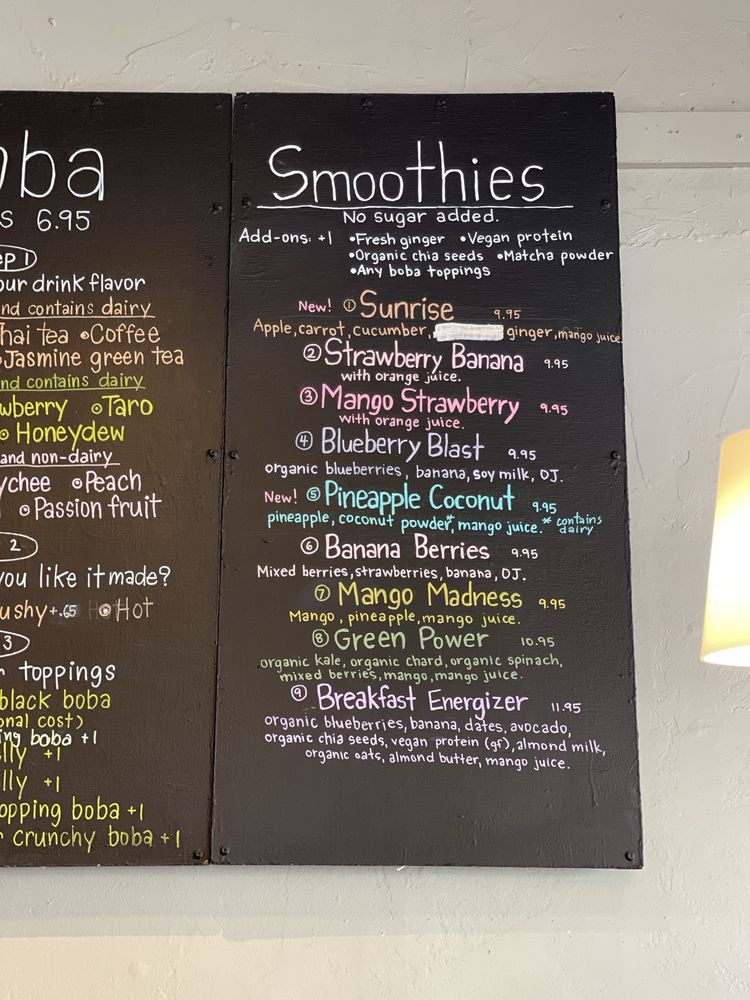 oba
s 6.95
ep 1
our drink flavor
nd contains dairy
hai tea • Coffee
• Jasmine green tea
nd contains dairy
wberry • Taro
• Honeydew
and non-dairy
ychee • Peach
• Passion fruit
2
you like it made?
ushy +.65 • Hot
3
r toppings
black boba
onal cost)
ing boba +1
lly +1
lly +1
opping boba +1
r crunchy boba +1
Smoothies
No sugar added.
Add-ons: +1 • Fresh ginger • Vegan protein
• Organic chia seeds • Matcha powder
• Any boba toppings
New! ① Sunrise 9.95
Apple, carrot, cucumber, ginger, mango juice.
② Strawberry Banana 9.95
with orange juice.
③ Mango Strawberry 9.95
with orange juice.
④ Blueberry Blast 9.95
organic blueberries, banana, soy milk, OJ.
New! ⑤ Pineapple Coconut 9.95
pineapple, coconut powder*, mango juice. * contains dairy
⑥ Banana Berries 9.95
Mixed berries, strawberries, banana, OJ.
⑦ Mango Madness 9.95
Mango, pineapple, mango juice.
⑧ Green Power 10.95
organic kale, organic chard, organic spinach,
mixed berries, mango, mango juice.
⑨ Breakfast Energizer 11.95
organic blueberries, banana, dates, avocado,
organic chia seeds, vegan protein (gf), almond milk,
organic oats, almond butter, mango juice.